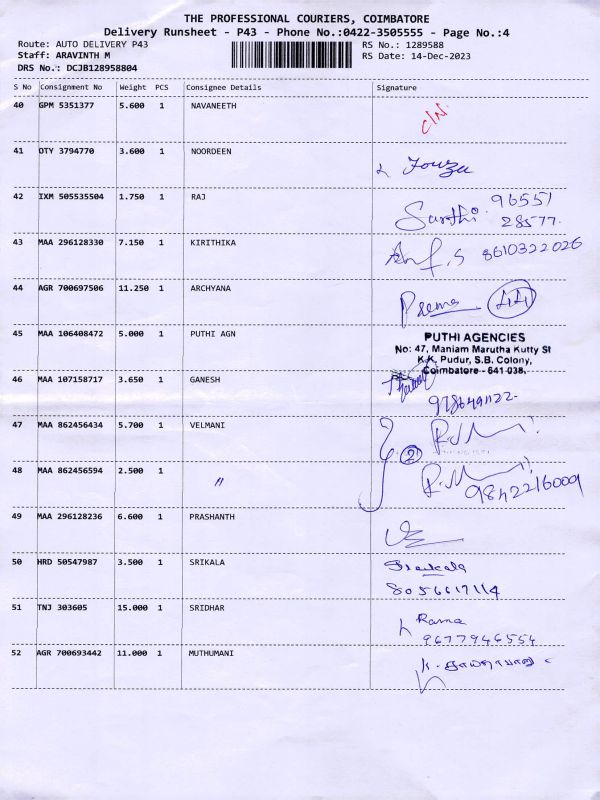 THE PROFESSIONAL COURIERS, COIMBATORE
Delivery Runsheet - P43 - Phone No.:0422-3505555 - Page No.:4
Route: AUTO DELIVERY P43 RS No.: 1289588
Staff: ARAVINTH M RS Date: 14-Dec-2023
DRS No.: DCJB128958804
S No Consignment No Weight PCS Consignee Details Signature
40 GPM 5351377 5.600 1 NAVANEETH
C/N.
41 OTY 3794770 3.600 1 NOORDEEN
42 IXM 505535504 1.750 1 RAJ
96551
28577.
43 MAA 296128330 7.150 1 KIRITHIKA
8610322026
44 AGR 700697506 11.250 1 ARCHYANA
Prema 44
45 MAA 106408472 5.000 1 PUTHI AGN
PUTHI AGENCIES
No: 47, Maniam Marutha Kutty St
K.K. Pudur, S.B. Colony,
Coimbatore - 641 038.
46 MAA 107158717 3.650 1 GANESH
47 MAA 862456434 5.700 1 VELMANI
2
48 MAA 862456594 2.500 1 "
9842216009
49 MAA 296128236 6.600 1 PRASHANTH
50 HRD 50547987 3.500 1 SRIKALA
Sreekala
8056617114
51 TNJ 303605 15.000 1 SRIDHAR
Rama
9677946554
52 AGR 700693442 11.000 1 MUTHUMANI